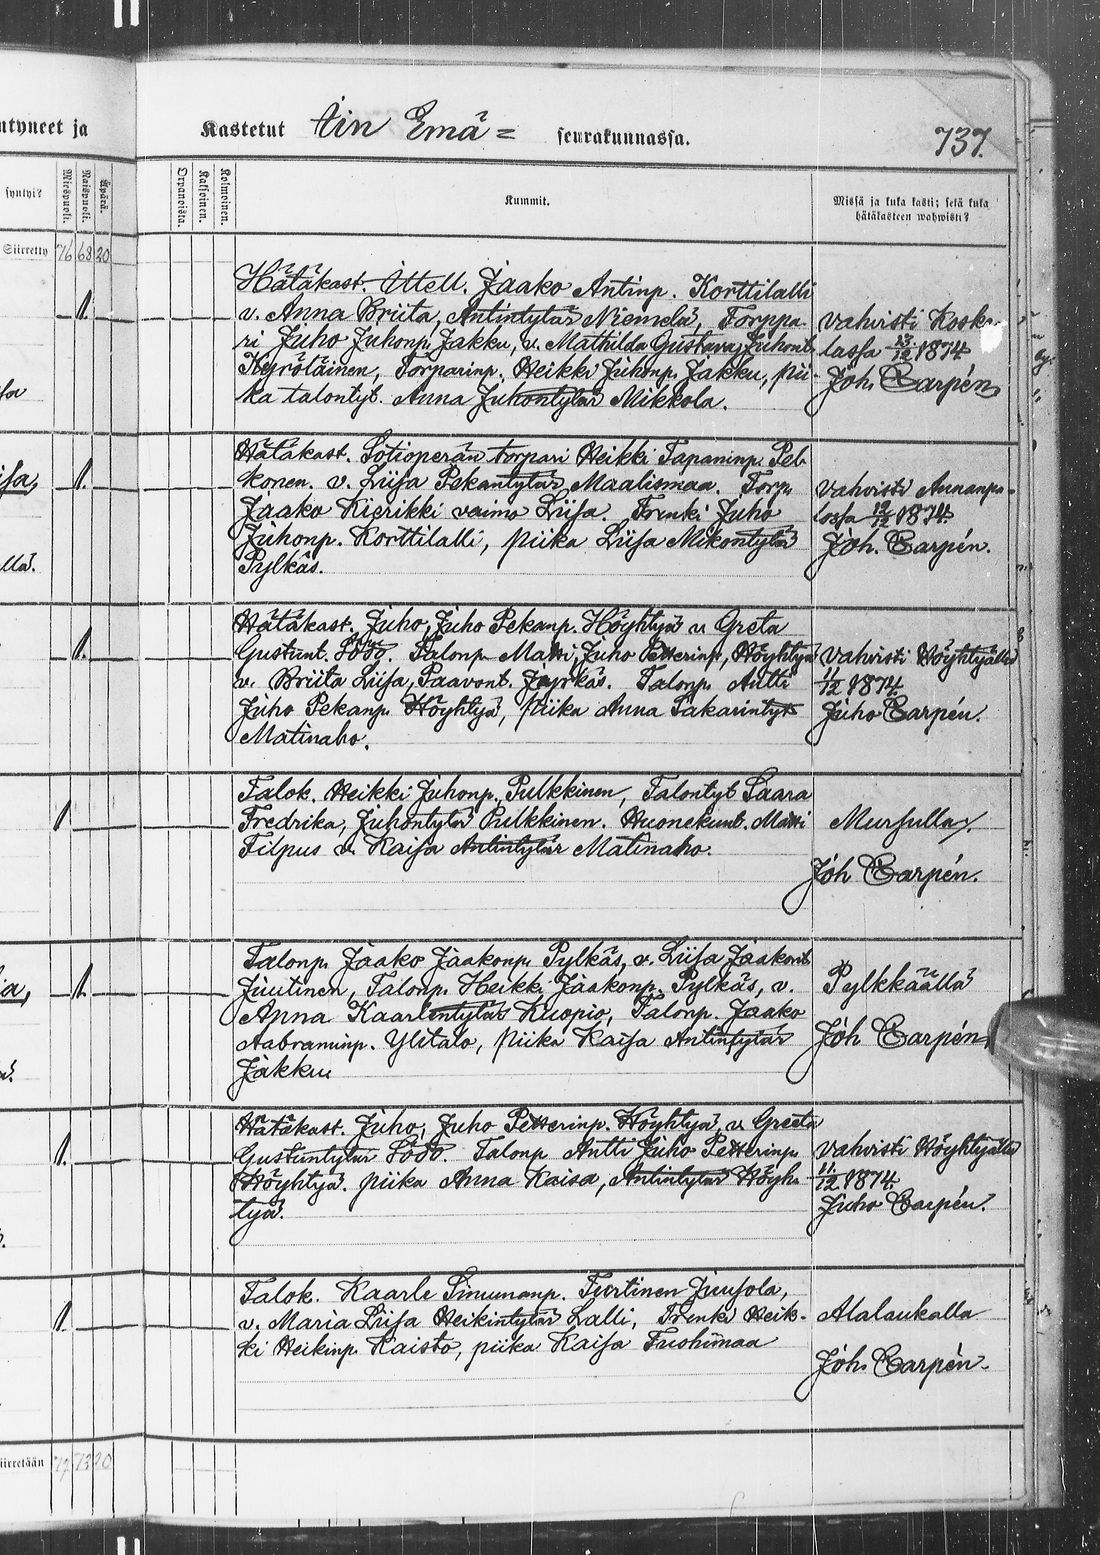 ntyneet ja
Kastetut Iin Emä= seurakunnassa.
737.
syntyi?
Miespuoli.
Naispuoli.
Äpärä.
Orpanoista.
Kaksoinen.
Kolmoinen.
Kummit.
Missä ja kuka kasti; sekä kuka
hätäkasteen wahwisti?
Siirretty 76 68 20
Hätäkast. Uttell. Jaako Antinp. Korttilalli
v. Anna Briita, Antintytär Niemelä, Torppa-
ri Juho Juhonp. Jakku, v. Mathilda Gustava Juhont.
Kyröläinen, Torparinp. Heikki Juhonp. Jakku, pii-
ka talontyt. Anna Juhontytär Mikkola.
vahvisti Koske
lassa 13/12 1874
Joh. Carpén
Hätäkast. Sotioperän torpari Heikki Tapaninp. Pek
konen. v. Liisa Pekantytär Maalismaa. Torp.
Jaako Kierikki vaimo Liisa. Trenki Juho
Juhonp. Korttilalli, piika Liisa Mikontytär
Pylkäs.
vahvisti Annanpa-
lossa 12/12 1874.
Joh. Carpén.
Hätäkast. Juho, Juho Pekanp. Höyhtyä v. Greta
Gustunt. Södö. Talonp. Matti, Juho Petterinp. Höyhtyä
v. Briita Liisa, Paavont. Jyrkäs. Talonp. Antti
Juho Pekanp. Höyhtyä, piika Anna Sakarintyt
Matinaho.
vahvisti Höyhtyällä
11/12 1874.
Juho Carpén.
Talok. Heikki Juhonp. Pulkkinen, Talontyt Saara
Fredrika, Juhontytär Pulkkinen. Huonekunt. Matti
Filpus v. Kaisa Antintytär Matinaho.
Mursulla
Joh Carpén.
Talonp. Jaako Jaakonp. Pylkäs, v. Liisa Jaakont
Juutinen, Talonp. Heikki Jaakonp. Pylkäs, v.
Anna Kaarlentytär Kuopio, Talonp. Jaako
Aabraminp. Ylitalo, piika Kaisa Antintytär
Jakku
Pylkkäällä
Joh Carpén
Hätäkast. Juho, Juho Petterinp. Höyhtyä, v. Greeta
Gustuntytär Södö. Talonp Antti Juho Petterinp
Höyhtyä. piika Anna Kaisa, Antintytär Höyh-
tyä.
vahvisti Höyhtyällä
11/12 1874.
Juho Carpén.
Talok. Kaarle Simunanp. Turtinen Juusola,
v. Maria Liisa Heikintytär Lalli, Trenki Heik-
ki Heikinp. Kaisto, piika Kaisa Tuohimaa
Alalaukalla
Joh. Carpén.
iirretään 77 73 20